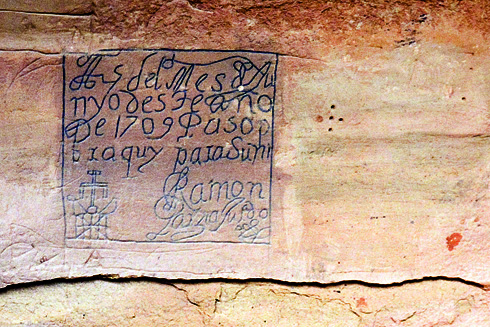 A 5 del Mes D Ju
nyo deste año
De 1709 Paso p
or aquy para Suñi
Ramon
Garcia Jurado